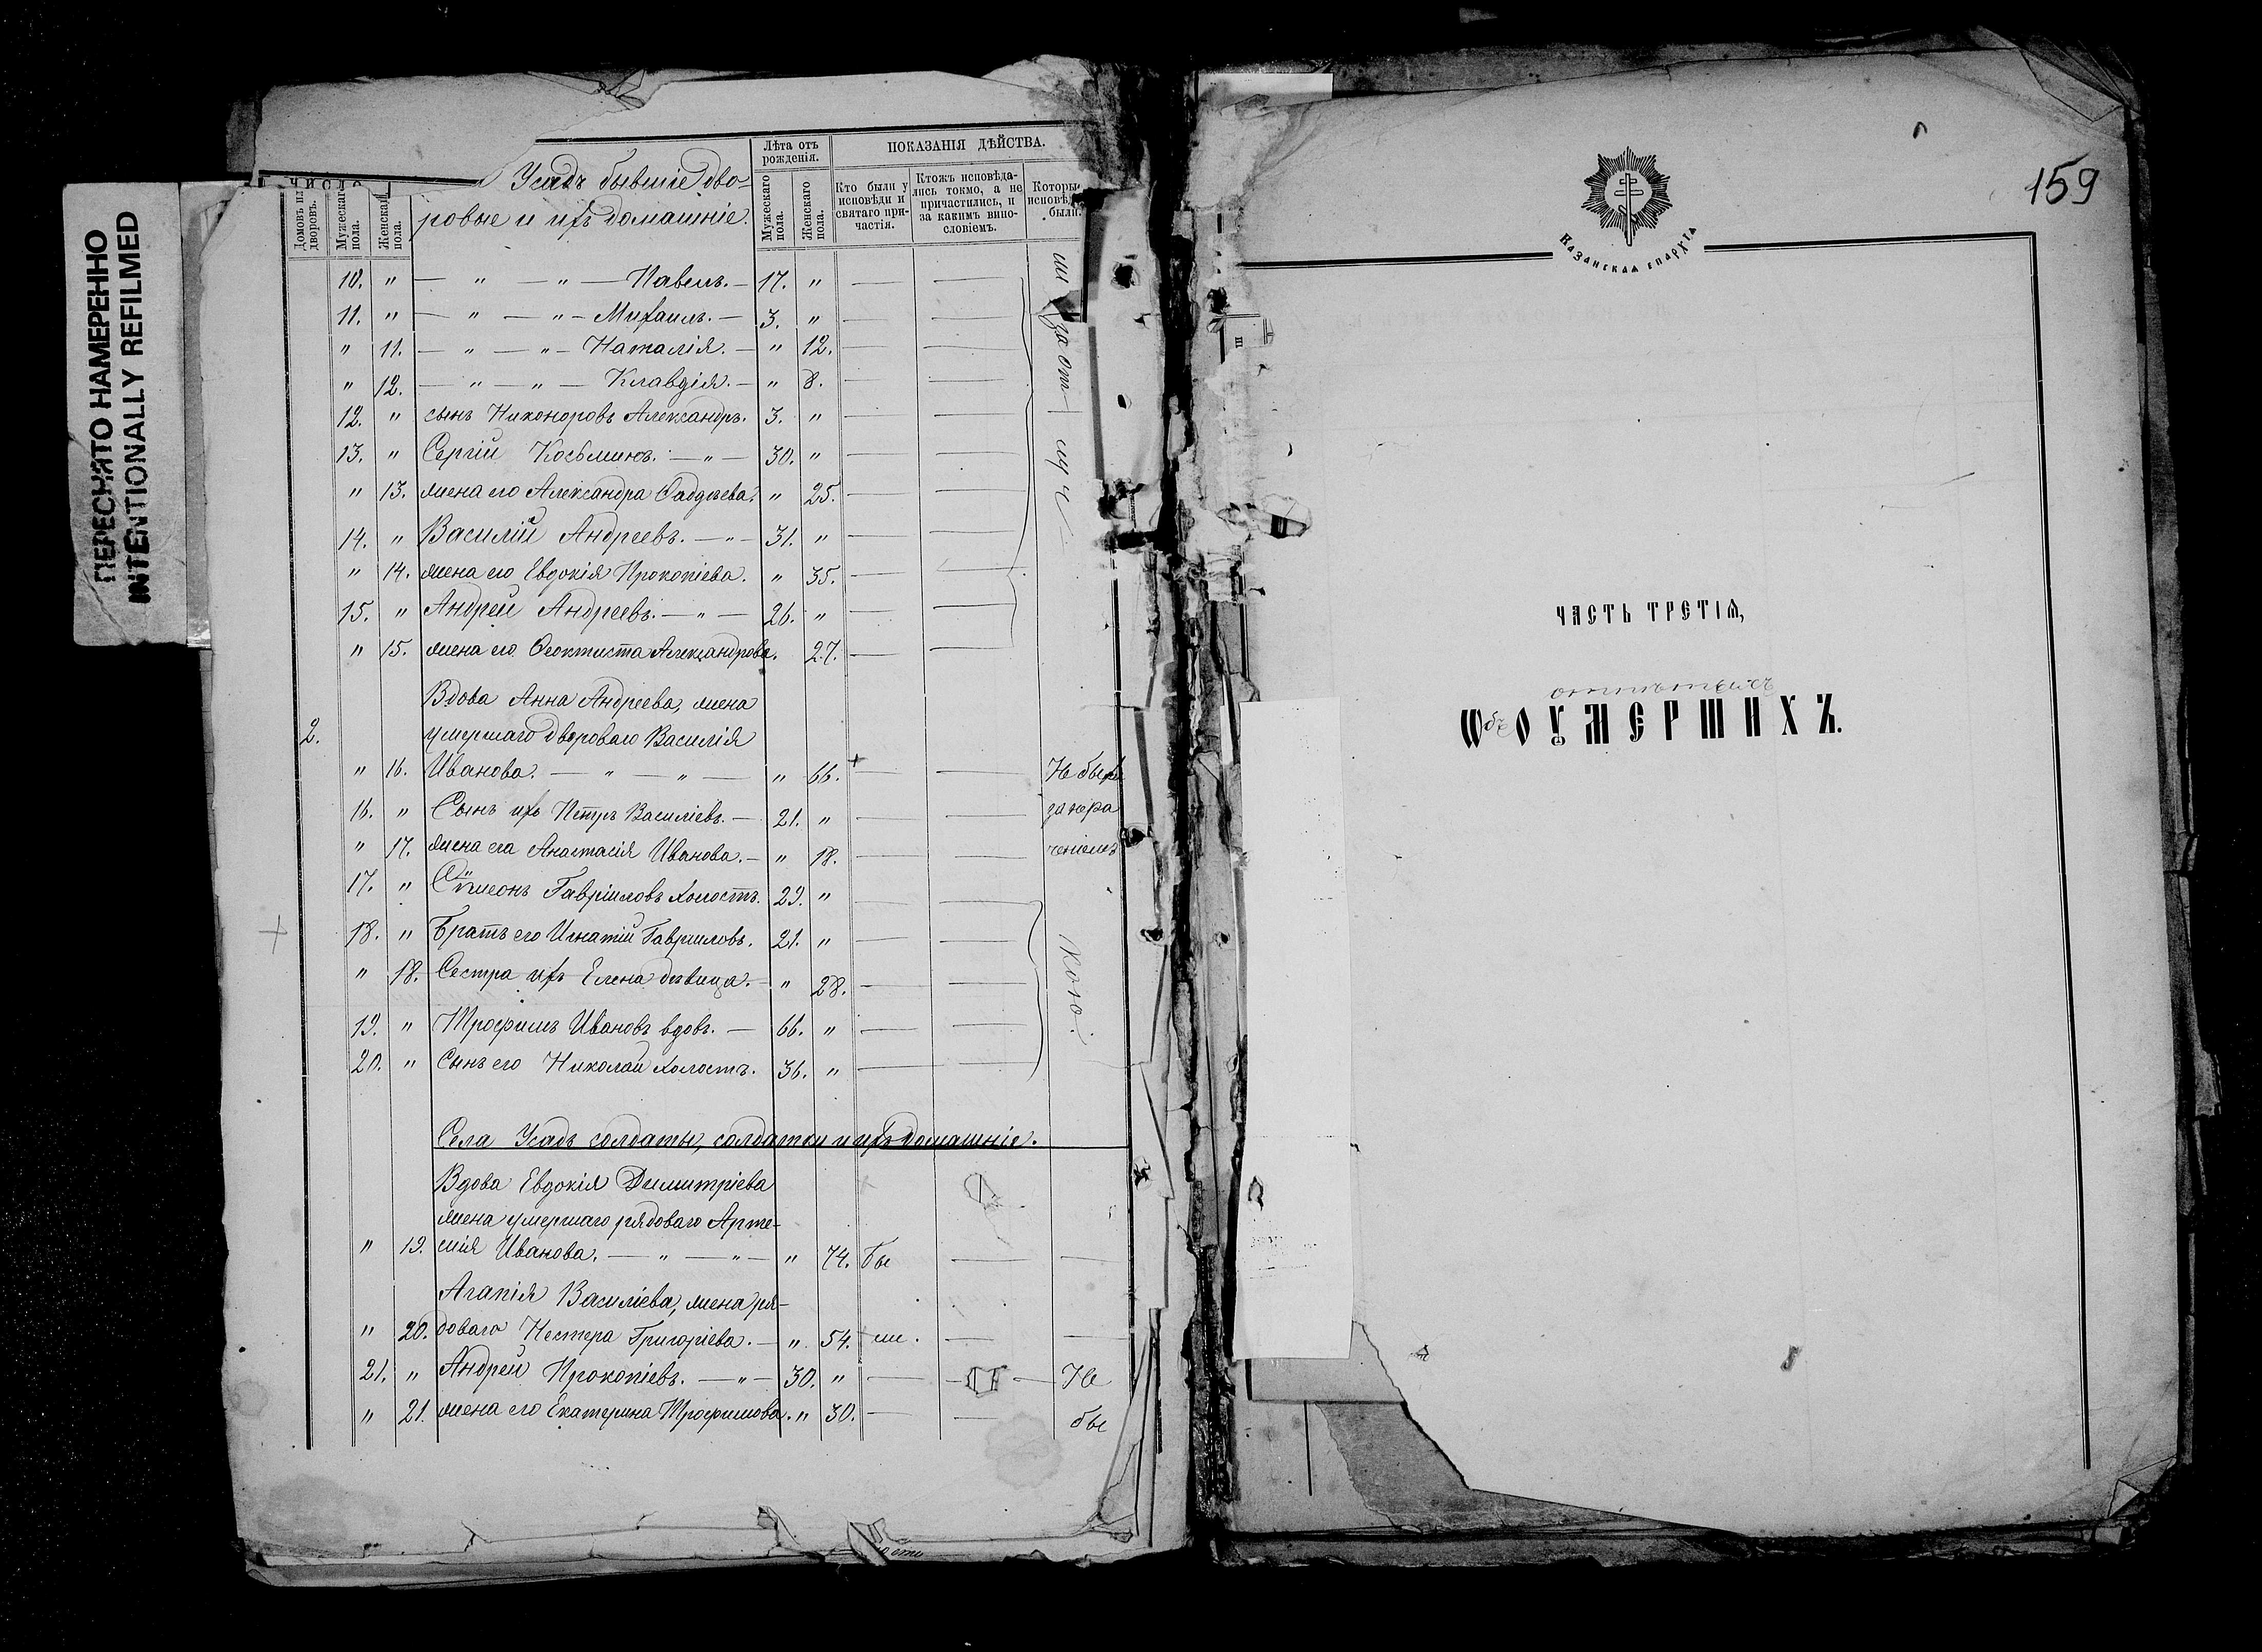 ПЕРЕСНЯТО НАМЕРЕННО
INTENTIONALLY REFILMED
ЧИСЛО
Домовъ ил
дворовъ.
Мужескаг
пола.
Женска
пола.
Усадъ бывшіе дво-
ровые и ихъ домашніе.
Лѣта отъ
рожденія.
Мужескаго
пола.
Женскаго
пола.
ПОКАЗАНІЯ ДѢЙСТВА.
Кто были у
исповѣди и
святаго при-
частія.
Ктожъ исповѣда-
лись токмо, а не
причастились, и
за какимъ вино-
словіемъ.
Которы
исповѣ
были.
10. " — " — " — Павелъ. — 17. "
11. " — " — " — Михаилъ. — 3. "
" 11. — " — " — Наталія. — " 12.
" 12. — " — " — Клавдія. — " 8.
12. " сынъ Никоноровъ Александръ. 3. "
13. " Сергій Косьминъ. — " — 30. "
" 13. жена его Александра Фаддеева. " 25.
14. " Василій Андреевъ. — " — 31. "
" 14. жена его Евдокія Прокопіева. " 35.
15. " Андрей Андреевъ. — " — 26. "
" 15. жена его Ѳеоктиста Александрова. 27.
за от луч
Вдова Анна Андреева, жена
2. умершаго двороваго Василія
" 16. Иванова. — " — " — " 66. Не был
16. " Сынъ ихъ Петръ Василіевъ. — 21. " за нера
" 17. жена его Анастасія Иванова. — " 18. ченіемъ
17. " Симеонъ Гавріиловъ холостъ. 29. "
18. " Братъ его Игнатій Гавріиловъ. 21. "
" 18. Сестра ихъ Елена дѣвица. — " 28.
19. " Трофимъ Ивановъ вдовъ. — 66. "
20. " Сынъ его Николай холостъ. 36. "
кою.
Села Усадъ солдаты, солдатки и ихъ домашніе.
Вдова Евдокія Димитріева
жена умершаго рядоваго Арте-
" 19. мія Иванова. — " — " — " 74. Бы — —
Агапія Василіева, жена ря-
" 20. доваго Нестера Григоріева. — " 54. ли. — —
21. " Андрей Прокопіевъ. — " — 30. " — — Не
" 21. жена его Екатерина Трофимова. " 30. — — бы
159
Казанская епархія
ЧАСТЬ ТРЕТІѦ,
Ѡ ОУМЕРШИХЪ.